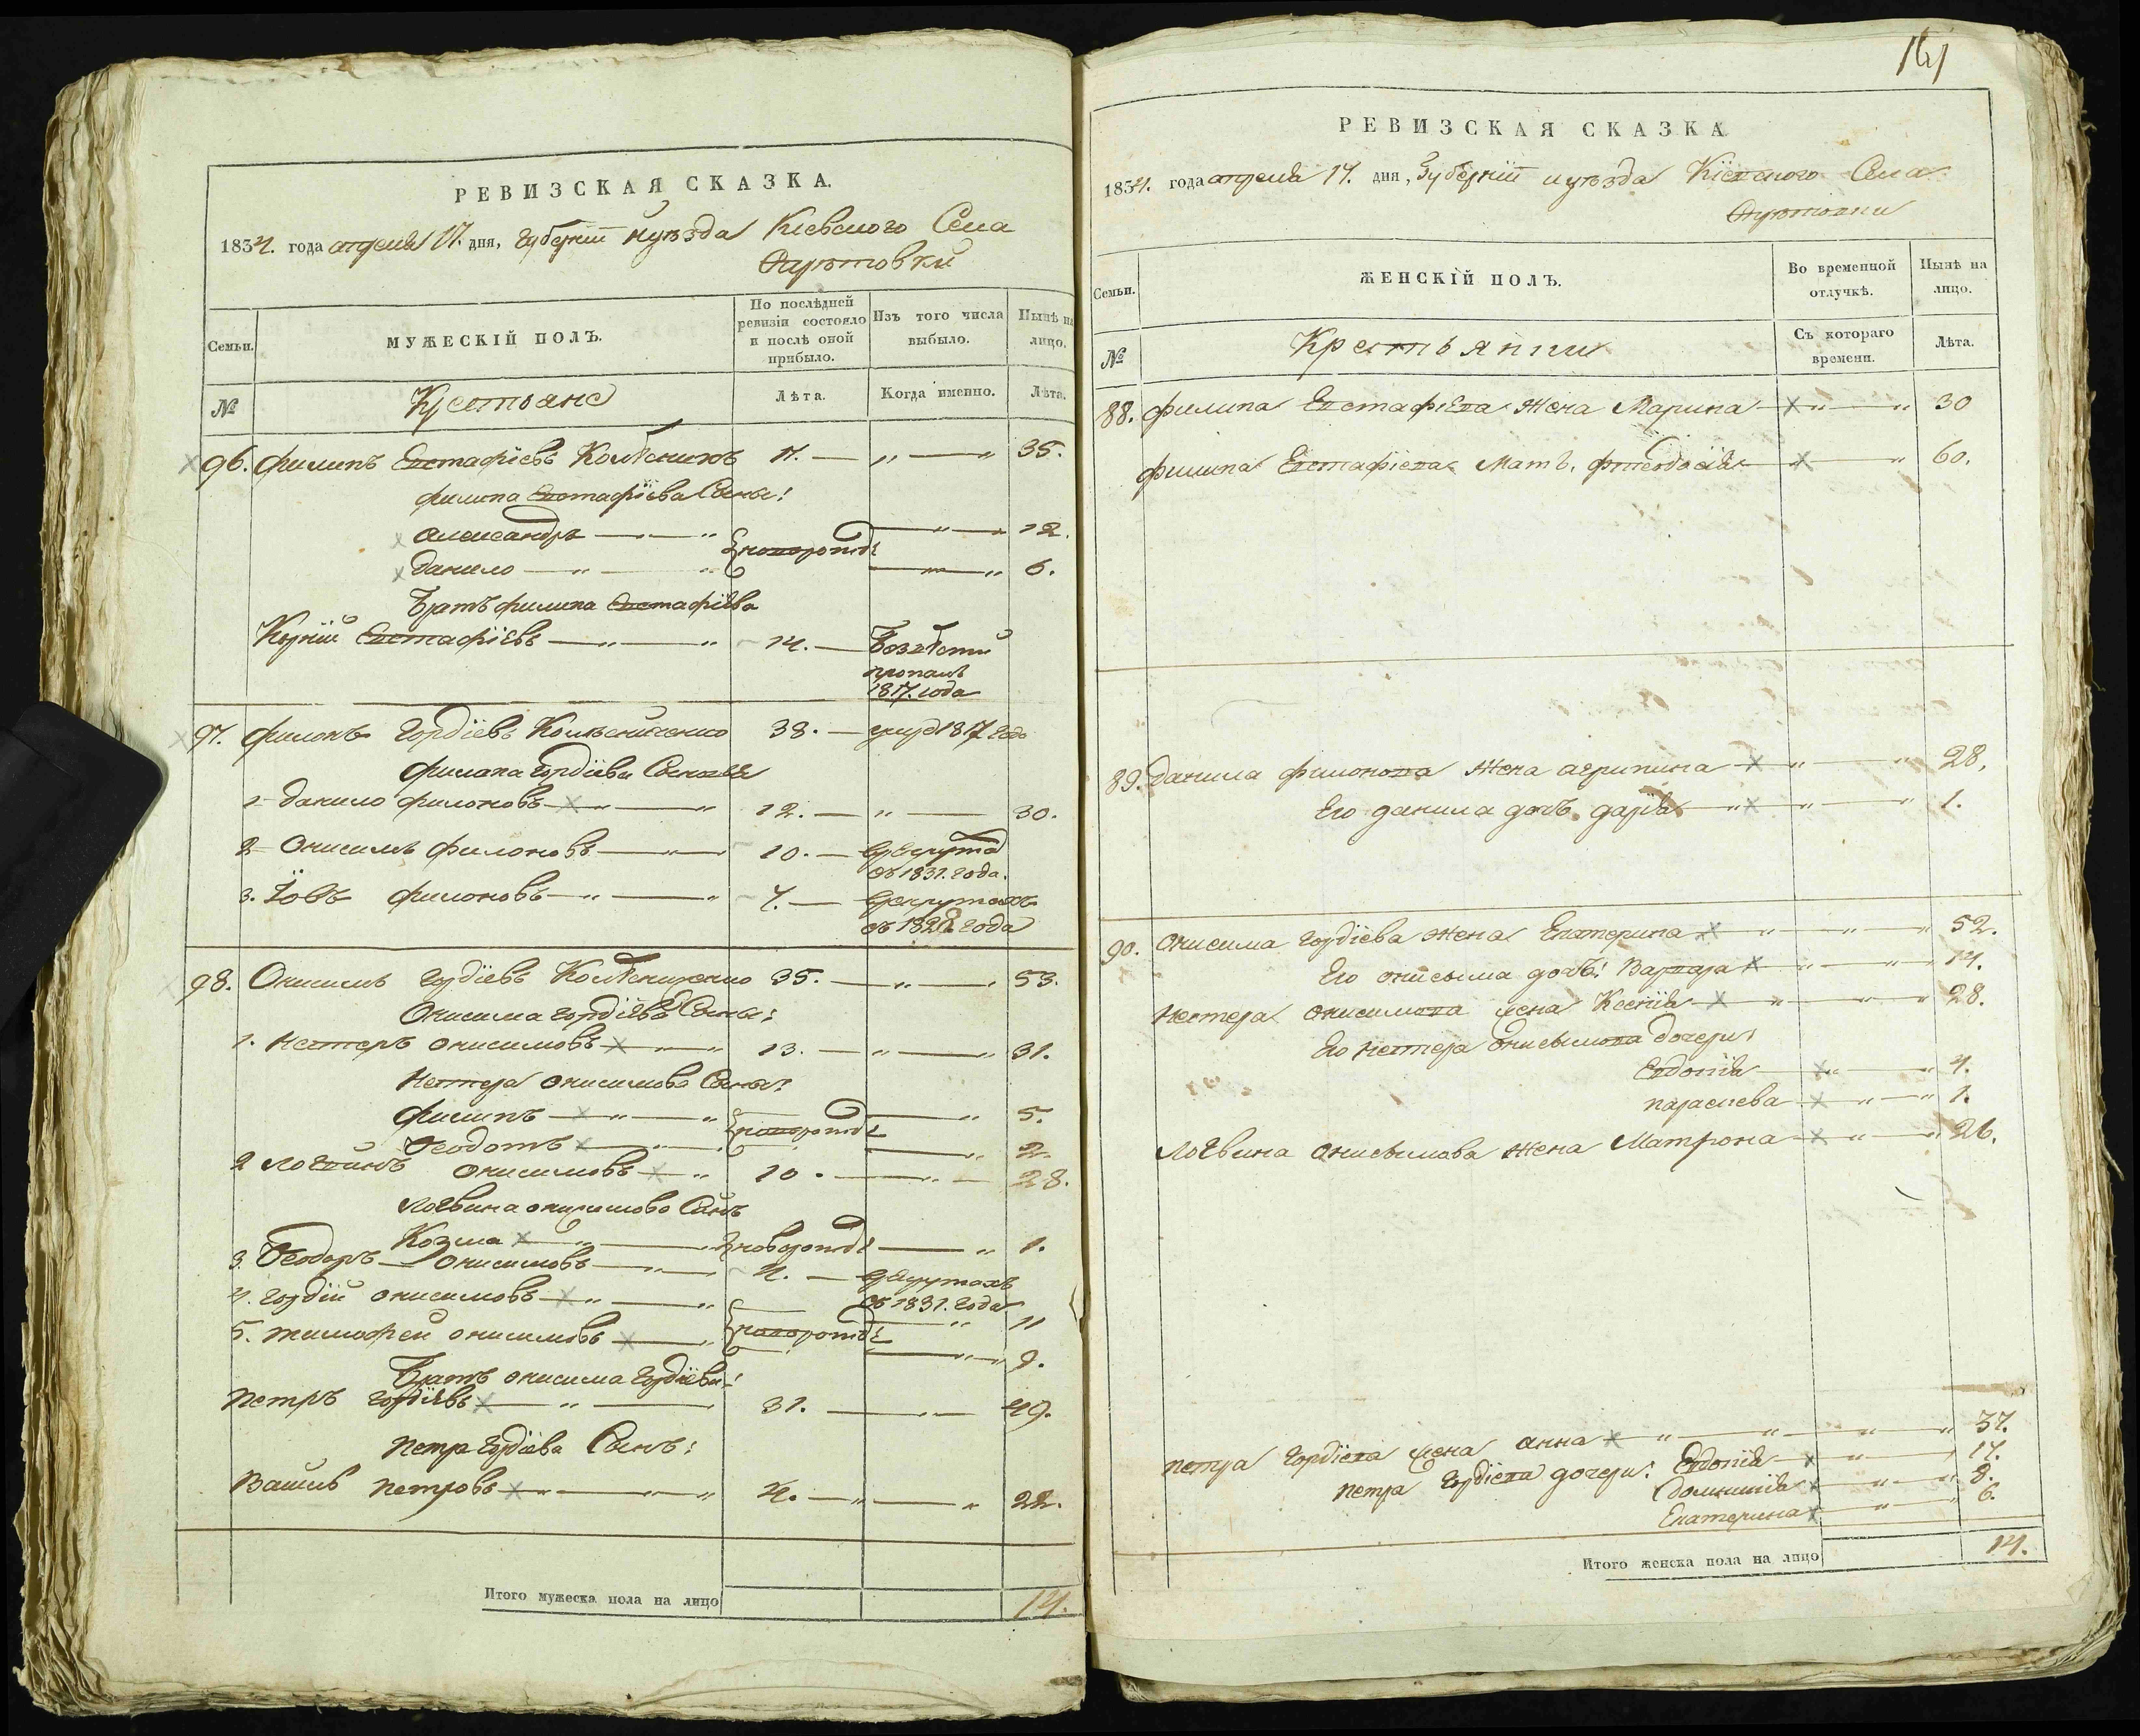 РЕВИЗСКАЯ СКАЗКА.
1834. года апреля 17. дня, губерніи и уѣзда Кіевского Села
Семьи.
МУЖЕСКІЙ ПОЛЪ.
По послѣдней ревизіи состояло и послѣ оной прибыло.
Изъ того числа выбыло.
Нынѣ на лицо.
№
Крестьяне
Лѣта.
Когда именно.
Лѣта.
96. Филипъ Евстафіевъ Колѣсникъ 17. — „ — „ 35.
Филипа Евстафіева Сыны:
Александръ — „ — „ новорожд: — „ — 12.
Данило — „ — „ — „ — „ 6.
Братъ Филипа Евстафіева
Евстафіевъ — „ — „ 14. — Безвѣстни
пропалъ
1817. года
97. Филонъ Гордіевъ Колѣсниченко 38. — умре 1817 года
Филона Гордіева Сыновья
1 Данило Филоновъ — „ — „ 12. — „ — 30.
2 Онисимъ Филоновъ — „ — 10. —
съ 1831. года.
3. Іовъ Филоновъ — „ — „ 7. — врекрутахъ
съ 1828 года
98. Онисимъ Гордіевъ Колѣсниченко 35. — „ — . 53.
Онисима Гордіева Сыны:
1. Нестеръ Онисимовъ — „ — „ 13. — „ — „ 31.
Нестера Онисимова Сыны:
Филипъ — „ — „ новорожд: — „ 5.
Феодотъ — . — . — „ 2.
2 Логвинъ Онисимовъ — „ 10. — „ — 28.
Логвина Онисимова Сынъ
Козма — „ — „ новорожд: — „ 1.
3. Феодоръ Онисимовъ — „ — 4. — врекрутахъ
съ 1831. года
4. Гордій Онисимовъ — „ — „ новорожд: — „ 11
5. Тимофей Онисимовъ — „ — „ — 9.
Братъ Онисима Гордіева:
Петръ Гордіевъ — „ — 31. — „ — 49.
Петра Гордіева Сынъ:
Василь Петровъ — „ — „ 4. — „ — „ 22.
Итого мужеска пола на лицо 14.
161
РЕВИЗСКАЯ СКАЗКА
1834. года апреля 17. дня, Губерніи и уѣзда Кіевского Села
Семьи.
ЖЕНСКІЙ ПОЛЪ.
Во временной отлучкѣ.
Нынѣ на лицо.
№
Крестьянки
Съ котораго времени.
Лѣта.
88. Филипа Евстафіева Жена Марина — „ — „ 30
Филипа Евстафіева Мать, Фтеодосія — „ 60.
89. Данила Филонова Жена Агрипина — „ — „ 28,
Его Данила дочь Дарія — „ „ — „ 1.
90. Онисима Гордіева Жена Екатерина — „ — „ — „ 52.
Его Онисыма дочь: Варвара „ — „ — „ 14.
Нестера Онисимова жена Ксенія — „ — „ — „ 28.
Его Нестера Онисымова дочери:
Евдокія — „ — „ 4.
Параскева — „ — „ 1.
Логвина Онисымова Жена Матрона — „ — „ 26.
Петра Гордіева жена Анна — „ — „ — „ — „ 37.
Петра Гордіева дочери: Евдокія — „ — „ 17.
Домникія — „ — „ 8.
Екатерина — „ — „ 6.
Итого женска пола на лицо 14.